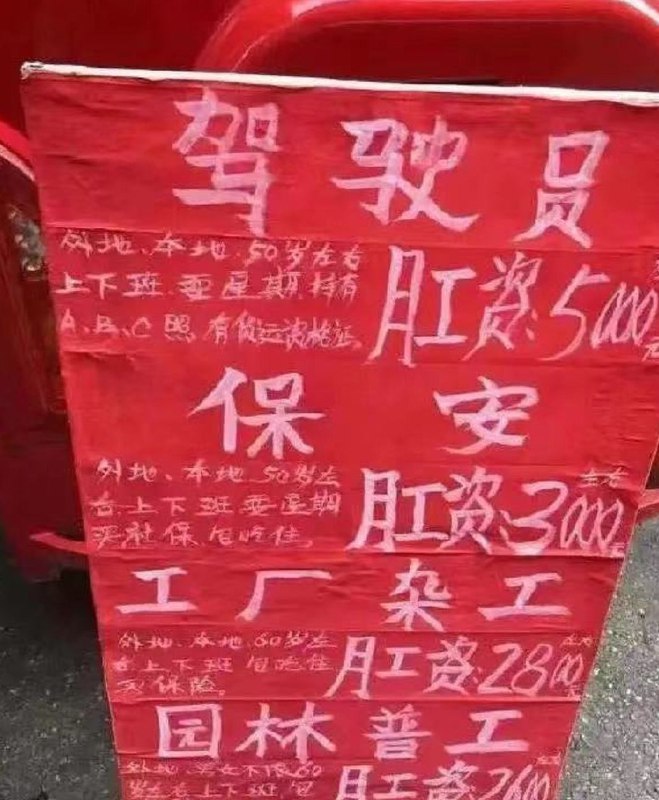 驾驶员
外地、本地、50岁左右
上下班 要星期 持有
A、B、C照 有货运资格证。
月工资:5000元
保安
外地、本地、50岁左
右上下班 要星期
买社保 包吃住。
月工资:3000
左右
工厂杂工
外地、本地、60岁左
右上下班 包吃住
买保险。
月工资:2800元
左右
园林普工
外地 男女不限60
岁左右 上下班 包
月工资:2600
左右